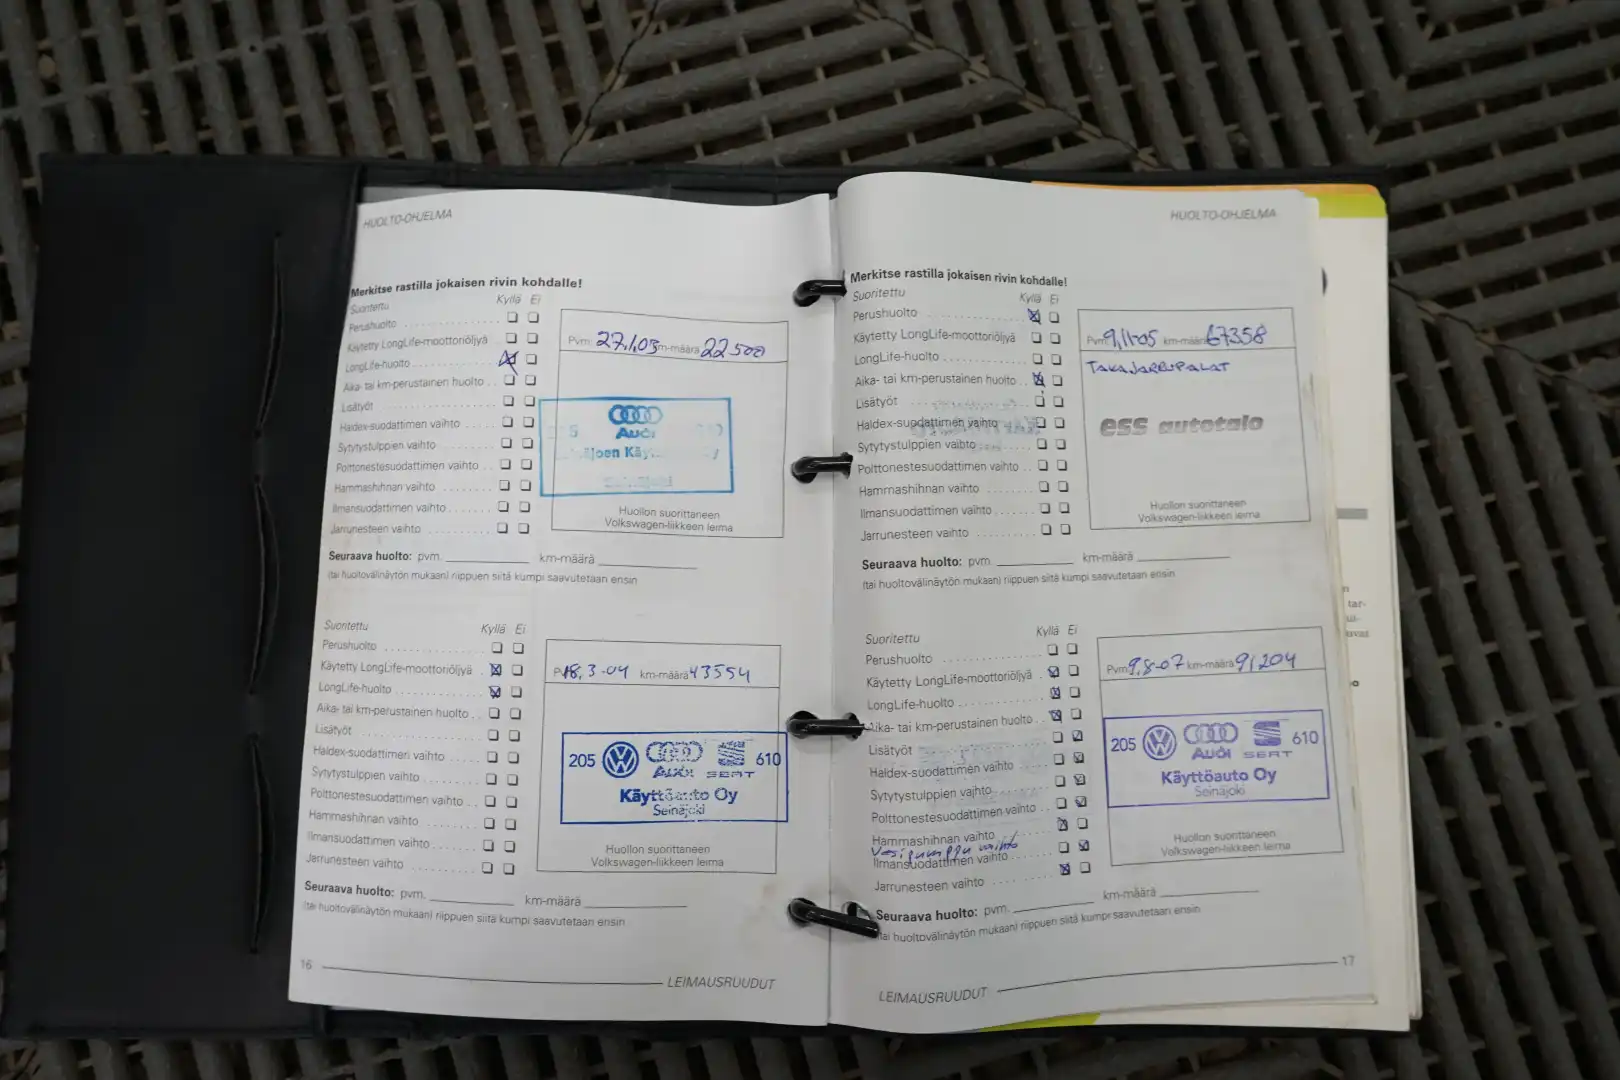 HUOLTO-OHJELMA
Merkitse rastilla jokaisen rivin kohdalle!
Suoritettu Kyllä Ei
Perushuolto
Käytetty LongLife-moottoriöljyä
LongLife-huolto
Aika- tai km-perustainen huolto
Lisätyöt
Haldex-suodattimen vaihto
Sytytystulppien vaihto
Polttonestesuodattimen vaihto
Hammashihnan vaihto
Ilmansuodattimen vaihto
Jarrunesteen vaihto
Pvm. 27.1.03 km-määrä 22500
Audi
Huollon suorittaneen
Volkswagen-liikkeen leima
Seuraava huolto: pvm. km-määrä
(tai huoltovälinäytön mukaan) riippuen siitä kumpi saavutetaan ensin
Suoritettu Kyllä Ei
Perushuolto
Käytetty LongLife-moottoriöljyä
LongLife-huolto
Aika- tai km-perustainen huolto
Lisätyöt
Haldex-suodattimen vaihto
Sytytystulppien vaihto
Polttonestesuodattimen vaihto
Hammashihnan vaihto
Ilmansuodattimen vaihto
Jarrunesteen vaihto
18.3.04 km-määrä 43554
205 Audi SEAT 610
Käyttöauto Oy
Seinäjoki
Huollon suorittaneen
Volkswagen-liikkeen leima
Seuraava huolto: pvm. km-määrä
(tai huoltovälinäytön mukaan) riippuen siitä kumpi saavutetaan ensin
16 LEIMAUSRUUDUT
HUOLTO-OHJELMA
Merkitse rastilla jokaisen rivin kohdalle!
Suoritettu Kyllä Ei
Perushuolto
Käytetty LongLife-moottoriöljyä
LongLife-huolto
Aika- tai km-perustainen huolto
Lisätyöt
Haldex-suodattimen vaihto
Sytytystulppien vaihto
Polttonestesuodattimen vaihto
Hammashihnan vaihto
Ilmansuodattimen vaihto
Jarrunesteen vaihto
Pvm km-määrä 67358
TAKAJARRUPALAT
ess autotalo
Huollon suorittaneen
Volkswagen-liikkeen leima
Seuraava huolto: pvm. km-määrä
(tai huoltovälinäytön mukaan) riippuen siitä kumpi saavutetaan ensin
Suoritettu Kyllä Ei
Perushuolto
Käytetty LongLife-moottoriöljyä
LongLife-huolto
Aika- tai km-perustainen huolto
Lisätyöt
Haldex-suodattimen vaihto
Sytytystulppien vaihto
Polttonestesuodattimen vaihto
Hammashihnan vaihto
Vesipumppu vaihto
Ilmansuodattimen vaihto
Jarrunesteen vaihto
Pvm 9.8.07 km-määrä 91204
205 Audi SEAT 610
Käyttöauto Oy
Seinäjoki
Huollon suorittaneen
Volkswagen-liikkeen leima
Seuraava huolto: pvm. km-määrä
(tai huoltovälinäytön mukaan) riippuen siitä kumpi saavutetaan ensin
LEIMAUSRUUDUT 17